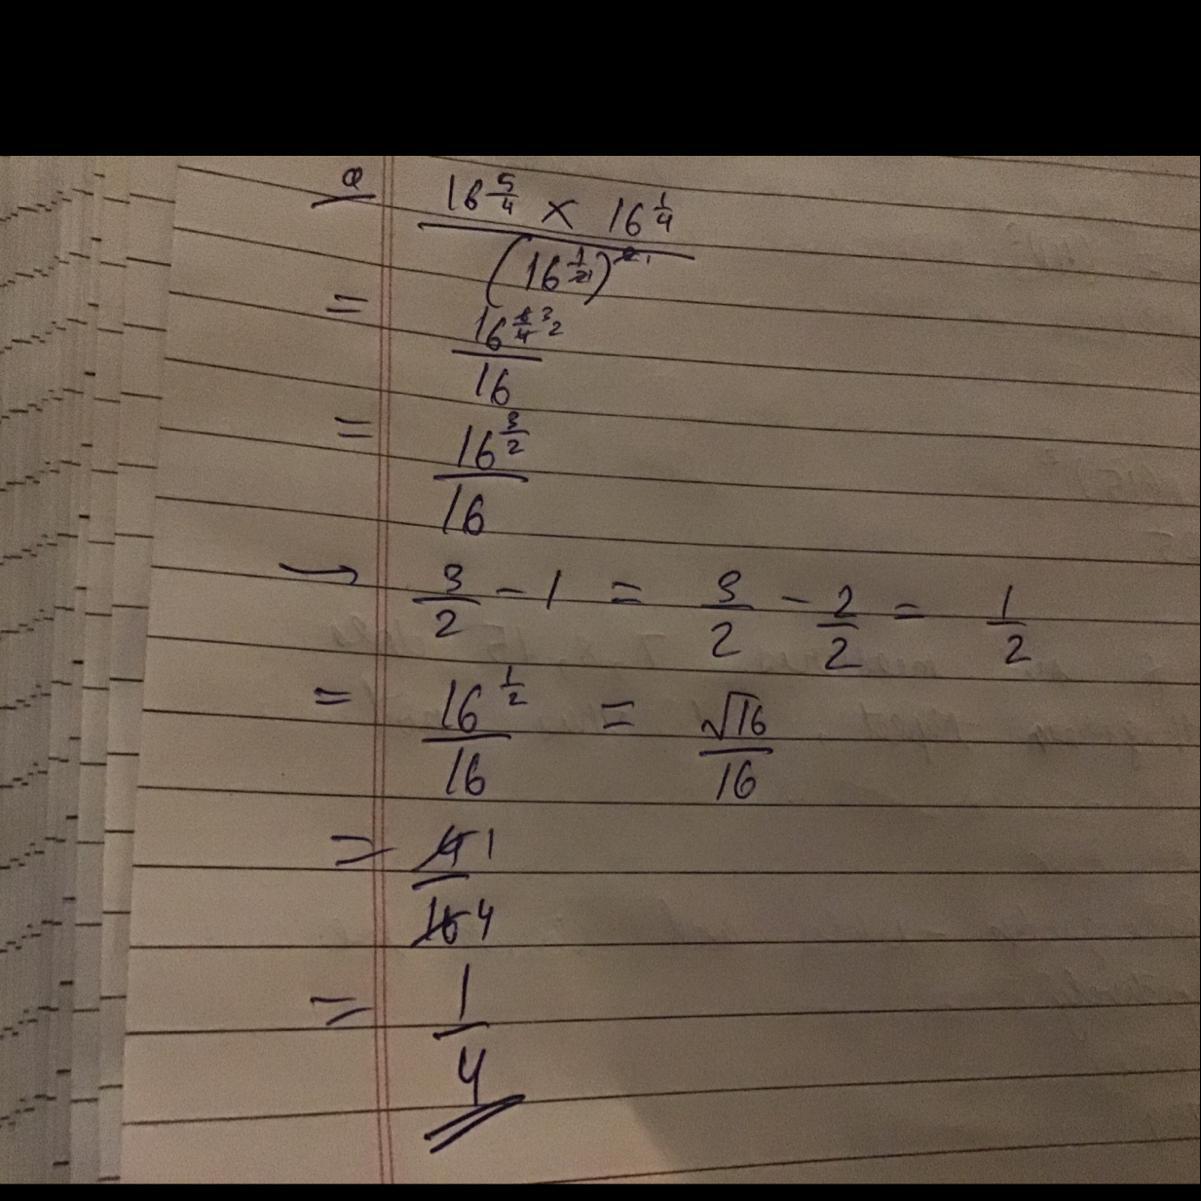 Q 16^{5/4} × 16^{1/4}
(16^{1/2})^{2}
= 16^{6/4 3/2}
16
= 16^{3/2}
16
→ 3/2 - 1 = 3/2 - 2/2 = 1/2
= 16^{1/2} / 16 = √16 / 16
= 4 1
16 4
= 1
4